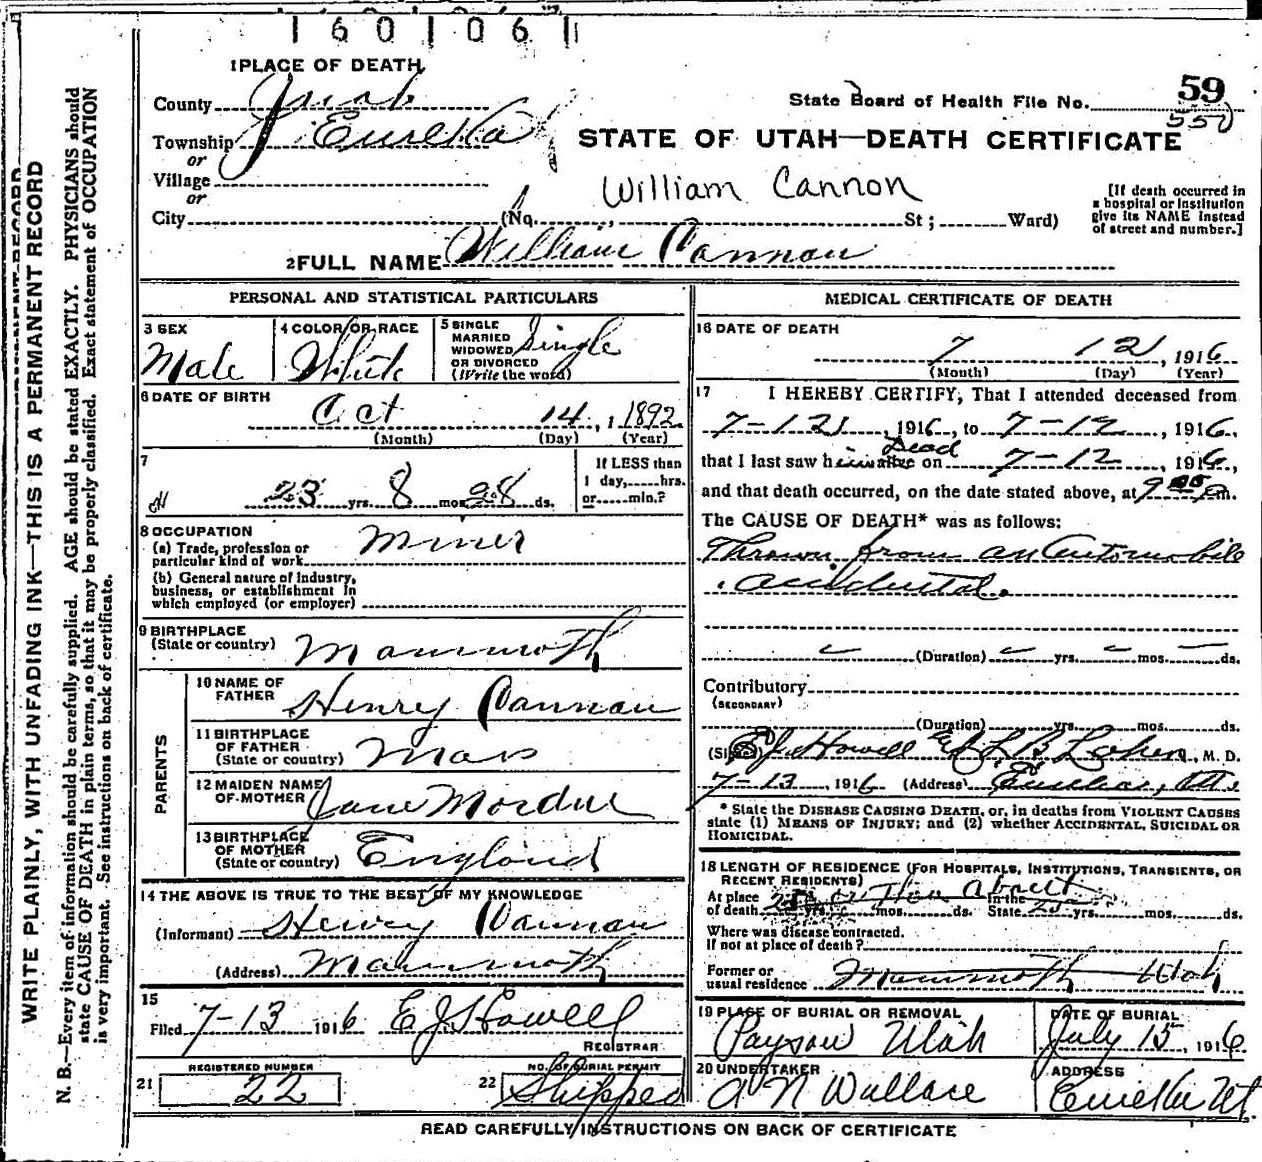 1601061
1 PLACE OF DEATH
County Juab
State Board of Health File No. 59
557
Township Eureka
or
STATE OF UTAH—DEATH CERTIFICATE
Village
or
William Cannon
City (No. , St; Ward)
[If death occurred in
a hospital or institution
give its NAME instead
of street and number.]
2 FULL NAME William Cannon
PERSONAL AND STATISTICAL PARTICULARS
3 SEX
Male
4 COLOR OR RACE
White
5 SINGLE
MARRIED
WIDOWED
OR DIVORCED
(Write the word)
Single
6 DATE OF BIRTH
Oct 14, 1892
(Month) (Day) (Year)
7
23 yrs. 8 mos. 28 ds.
If LESS than
1 day, hrs.
or min.?
8 OCCUPATION
(a) Trade, profession or
particular kind of work Miner
(b) General nature of industry,
business, or establishment in
which employed (or employer)
9 BIRTHPLACE
(State or country) Mammoth
PARENTS
10 NAME OF
FATHER Henry Cannon
11 BIRTHPLACE
OF FATHER
(State or country) Mass
12 MAIDEN NAME
OF MOTHER Jane Mordue
13 BIRTHPLACE
OF MOTHER
(State or country) England
14 THE ABOVE IS TRUE TO THE BEST OF MY KNOWLEDGE
(Informant) Henry Cannon
(Address) Mammoth
15
Filed 7-13 1916 E J Howell
REGISTRAR
21
REGISTERED NUMBER
22
22
NO. OF BURIAL PERMIT
Shipped
MEDICAL CERTIFICATE OF DEATH
16 DATE OF DEATH
7 12, 1916
(Month) (Day) (Year)
17 I HEREBY CERTIFY, That I attended deceased from
7-12, 1916, to 7-12, 1916,
Dead
that I last saw him alive on 7-12, 1916,
and that death occurred, on the date stated above, at 9 P m.
The CAUSE OF DEATH* was as follows:
Thrown from an Automobile
accidental.
(Duration) yrs. mos. ds.
Contributory
(SECONDARY)
(Duration) yrs. mos. ds.
(Signed) E J Howell , M. D.
7-13, 1916 (Address) Eureka, Ut.
* State the DISEASE CAUSING DEATH, or, in deaths from VIOLENT CAUSES
state (1) MEANS OF INJURY; and (2) whether ACCIDENTAL, SUICIDAL OR
HOMICIDAL.
18 LENGTH OF RESIDENCE (FOR HOSPITALS, INSTITUTIONS, TRANSIENTS, OR
RECENT RESIDENTS)
At place
of death yrs. mos. ds. In the
State yrs. mos. ds.
Where was disease contracted.
if not at place of death?
Former or
usual residence Mammoth Utah
19 PLACE OF BURIAL OR REMOVAL
Payson Utah
DATE OF BURIAL
July 15, 1916
20 UNDERTAKER
A N Wallace
ADDRESS
Eureka Ut
READ CAREFULLY INSTRUCTIONS ON BACK OF CERTIFICATE
WRITE PLAINLY, WITH UNFADING INK—THIS IS A PERMANENT RECORD
N. B.—Every item of information should be carefully supplied. AGE should be stated EXACTLY. PHYSICIANS should
state CAUSE OF DEATH in plain terms, so that it may be properly classified. Exact statement of OCCUPATION
is very important. See instructions on back of certificate.